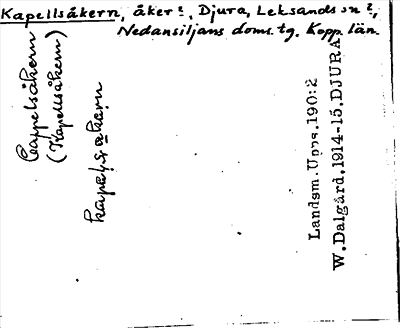 Kapellsåkern, åker?, Djura, Leksands sn?,
Nedansiljans doms. tg. Kopp. län.
Cappelsåkern
(Kapellsåkern)
Landsm. Upps. 190:2
W. Dalgård. 1914-15. DJURA